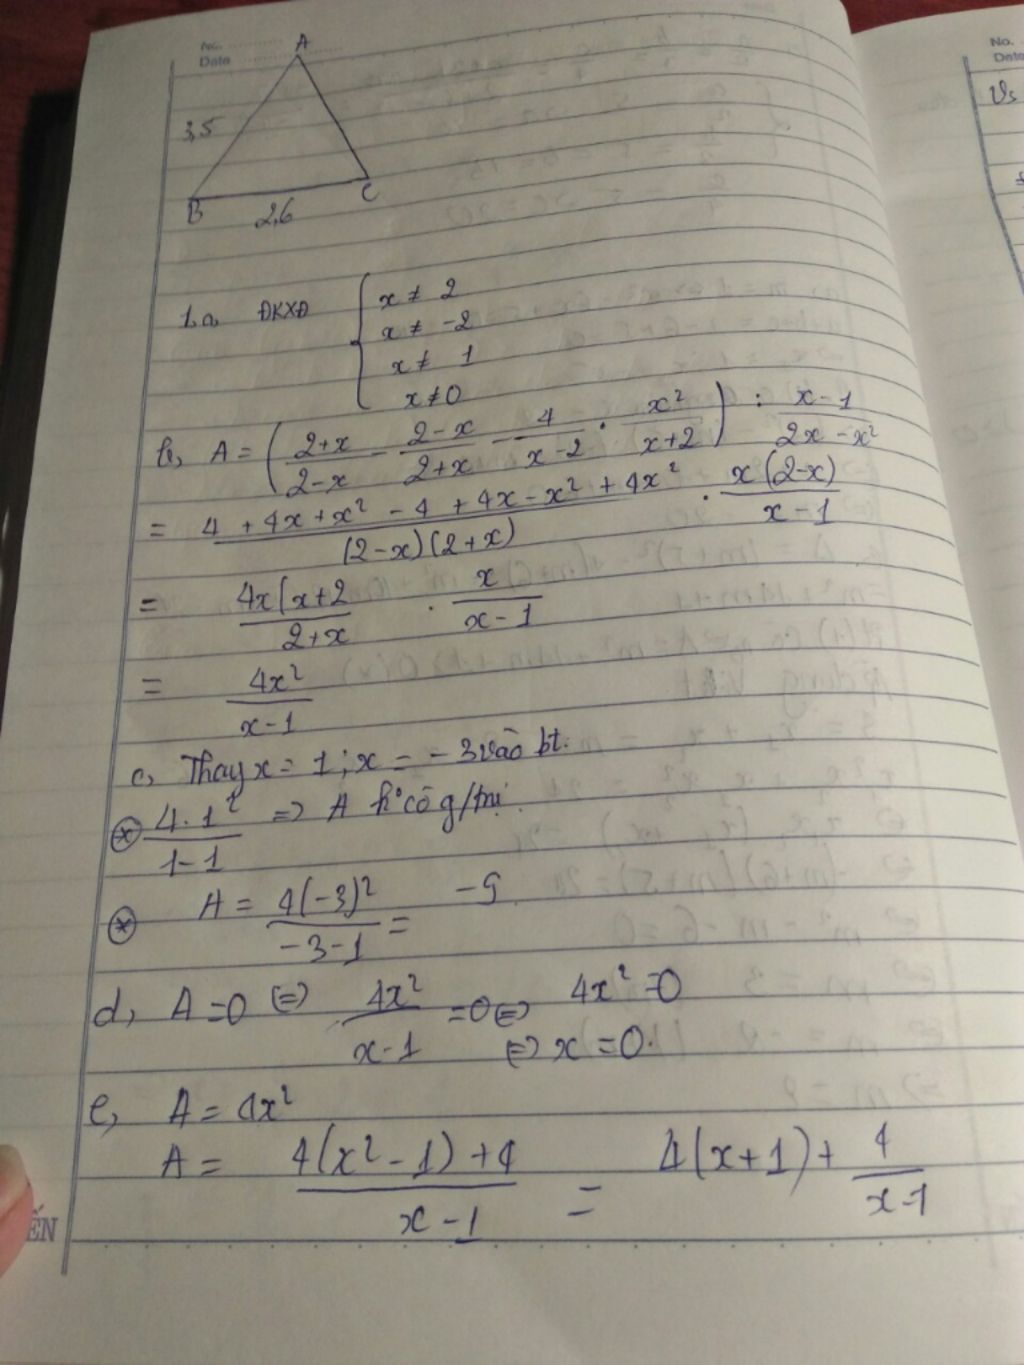 No.
Date
A
3,5
B
C
2,6
1.a, ĐKXĐ { x ≠ 2
x ≠ -2
x ≠ 1
x ≠ 0
b, A = ( (2+x)/(2-x) - (2-x)/(2+x) - 4/(x-2) · x²/(x+2) ) : (x-1)/(2x-x²)
= (4 + 4x + x² - 4 + 4x - x² + 4x²)/((2-x)(2+x)) · x(2-x)/(x-1)
= 4x(x+2/(2+x) · x/(x-1)
= 4x²/(x-1)
c, Thay x = 1 ; x = -3 vào bt.
⊛ 4.1²/(1-1) => A k° có g/trị.
⊛ A = 4(-3)²/(-3-1) = -9
d, A = 0 <=> 4x²/(x-1) = 0 <=> 4x² = 0
<=> x = 0.
e, A = 4x²
A = (4(x²-1)+4)/(x-1) = 4(x+1) + 4/(x-1)
ẾN
No.
Date